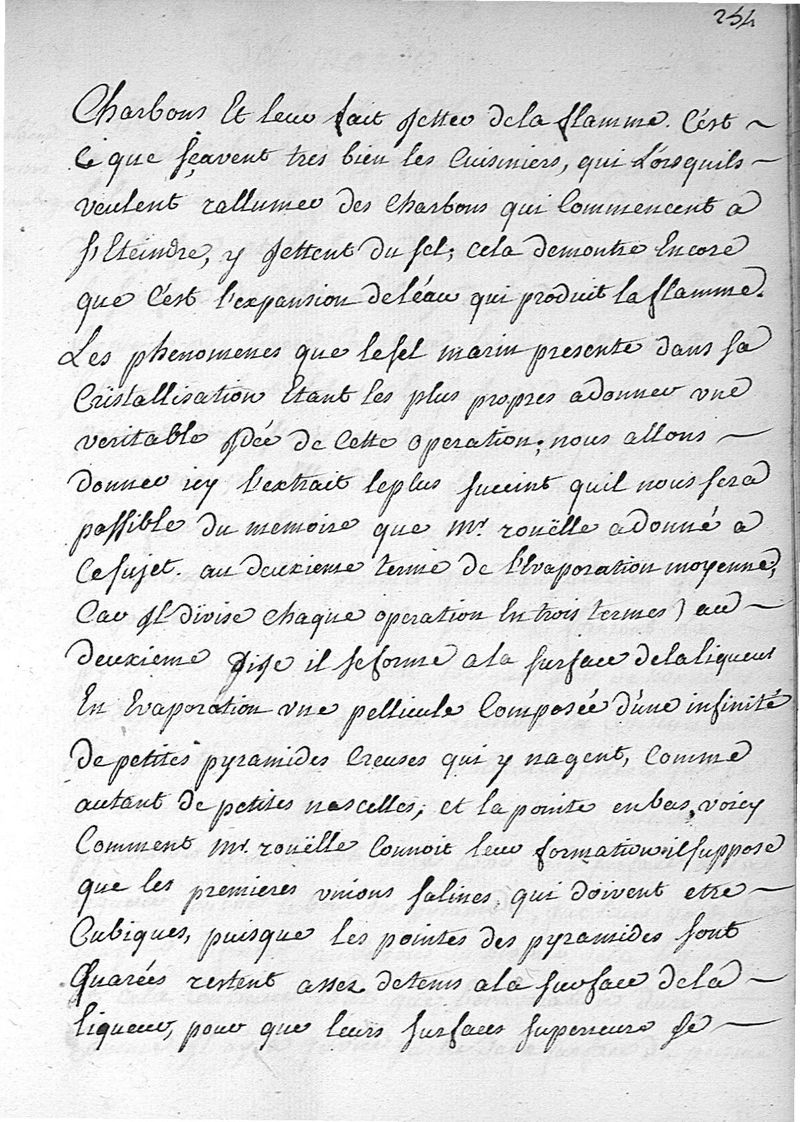 254
Charbons Et leur fait Jetter de la flamme. C'est ~
Ce que sçavent tres bien les Cuisiniers, qui Lorsquils ~
veulent rallumer des Charbons qui Commencent a
s'Eteindre, y Jettent du sel; cela demontre Encore
que C'est l'expansion de léau qui produit la flamme.
Les phenomenes que le sel marin presente dans sa
Cristallisation Etant les plus propres a donner vne
veritable Idée de Cette operation, nous allons —
donner icy l'extrait le plus succint quil nous sera
possible du memoire que Mr. rouëlle a donné a
Ce sujet. au deuxieme terme de l'Evaporation moyenne,
Car Il divise chaque operation En trois termes) au —
deuxieme dis je il se forme a la surface de la liqueur
En Evaporation vne pellicule Composée d'une infinité
de petites pyramides Creuses qui y nagent, Comme
autant de petites nascelles, et la pointe en bas, voicy
Comment Mr. rouëlle Connoit leur formation il suppose
que les premieres vnions salines, qui doivent etre —
Cubiques, puisque les pointes des pyramides sont
Quarées restent assez detems a la surface de la —
liqueur, pour que leurs surfaces superieurs se —